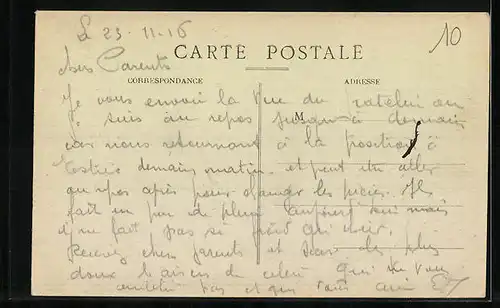 Le 23-11-16
10
CARTE POSTALE
CORRESPONDANCE
ADRESSE
M
chers Parents
Je vous envoie la vue du
Je suis au repos jusqu'à demain
car nous retournant à la position à
demain matin et peut etre aller
au repos après pour changer les pièces. Il
fait un peu de pluie aujourd'hui mais
il ne fait pas si froid qu'hier.
Recevez chers parents et les plus
doux baisers de celui qui ne vous
oublie pas et qui vous aime